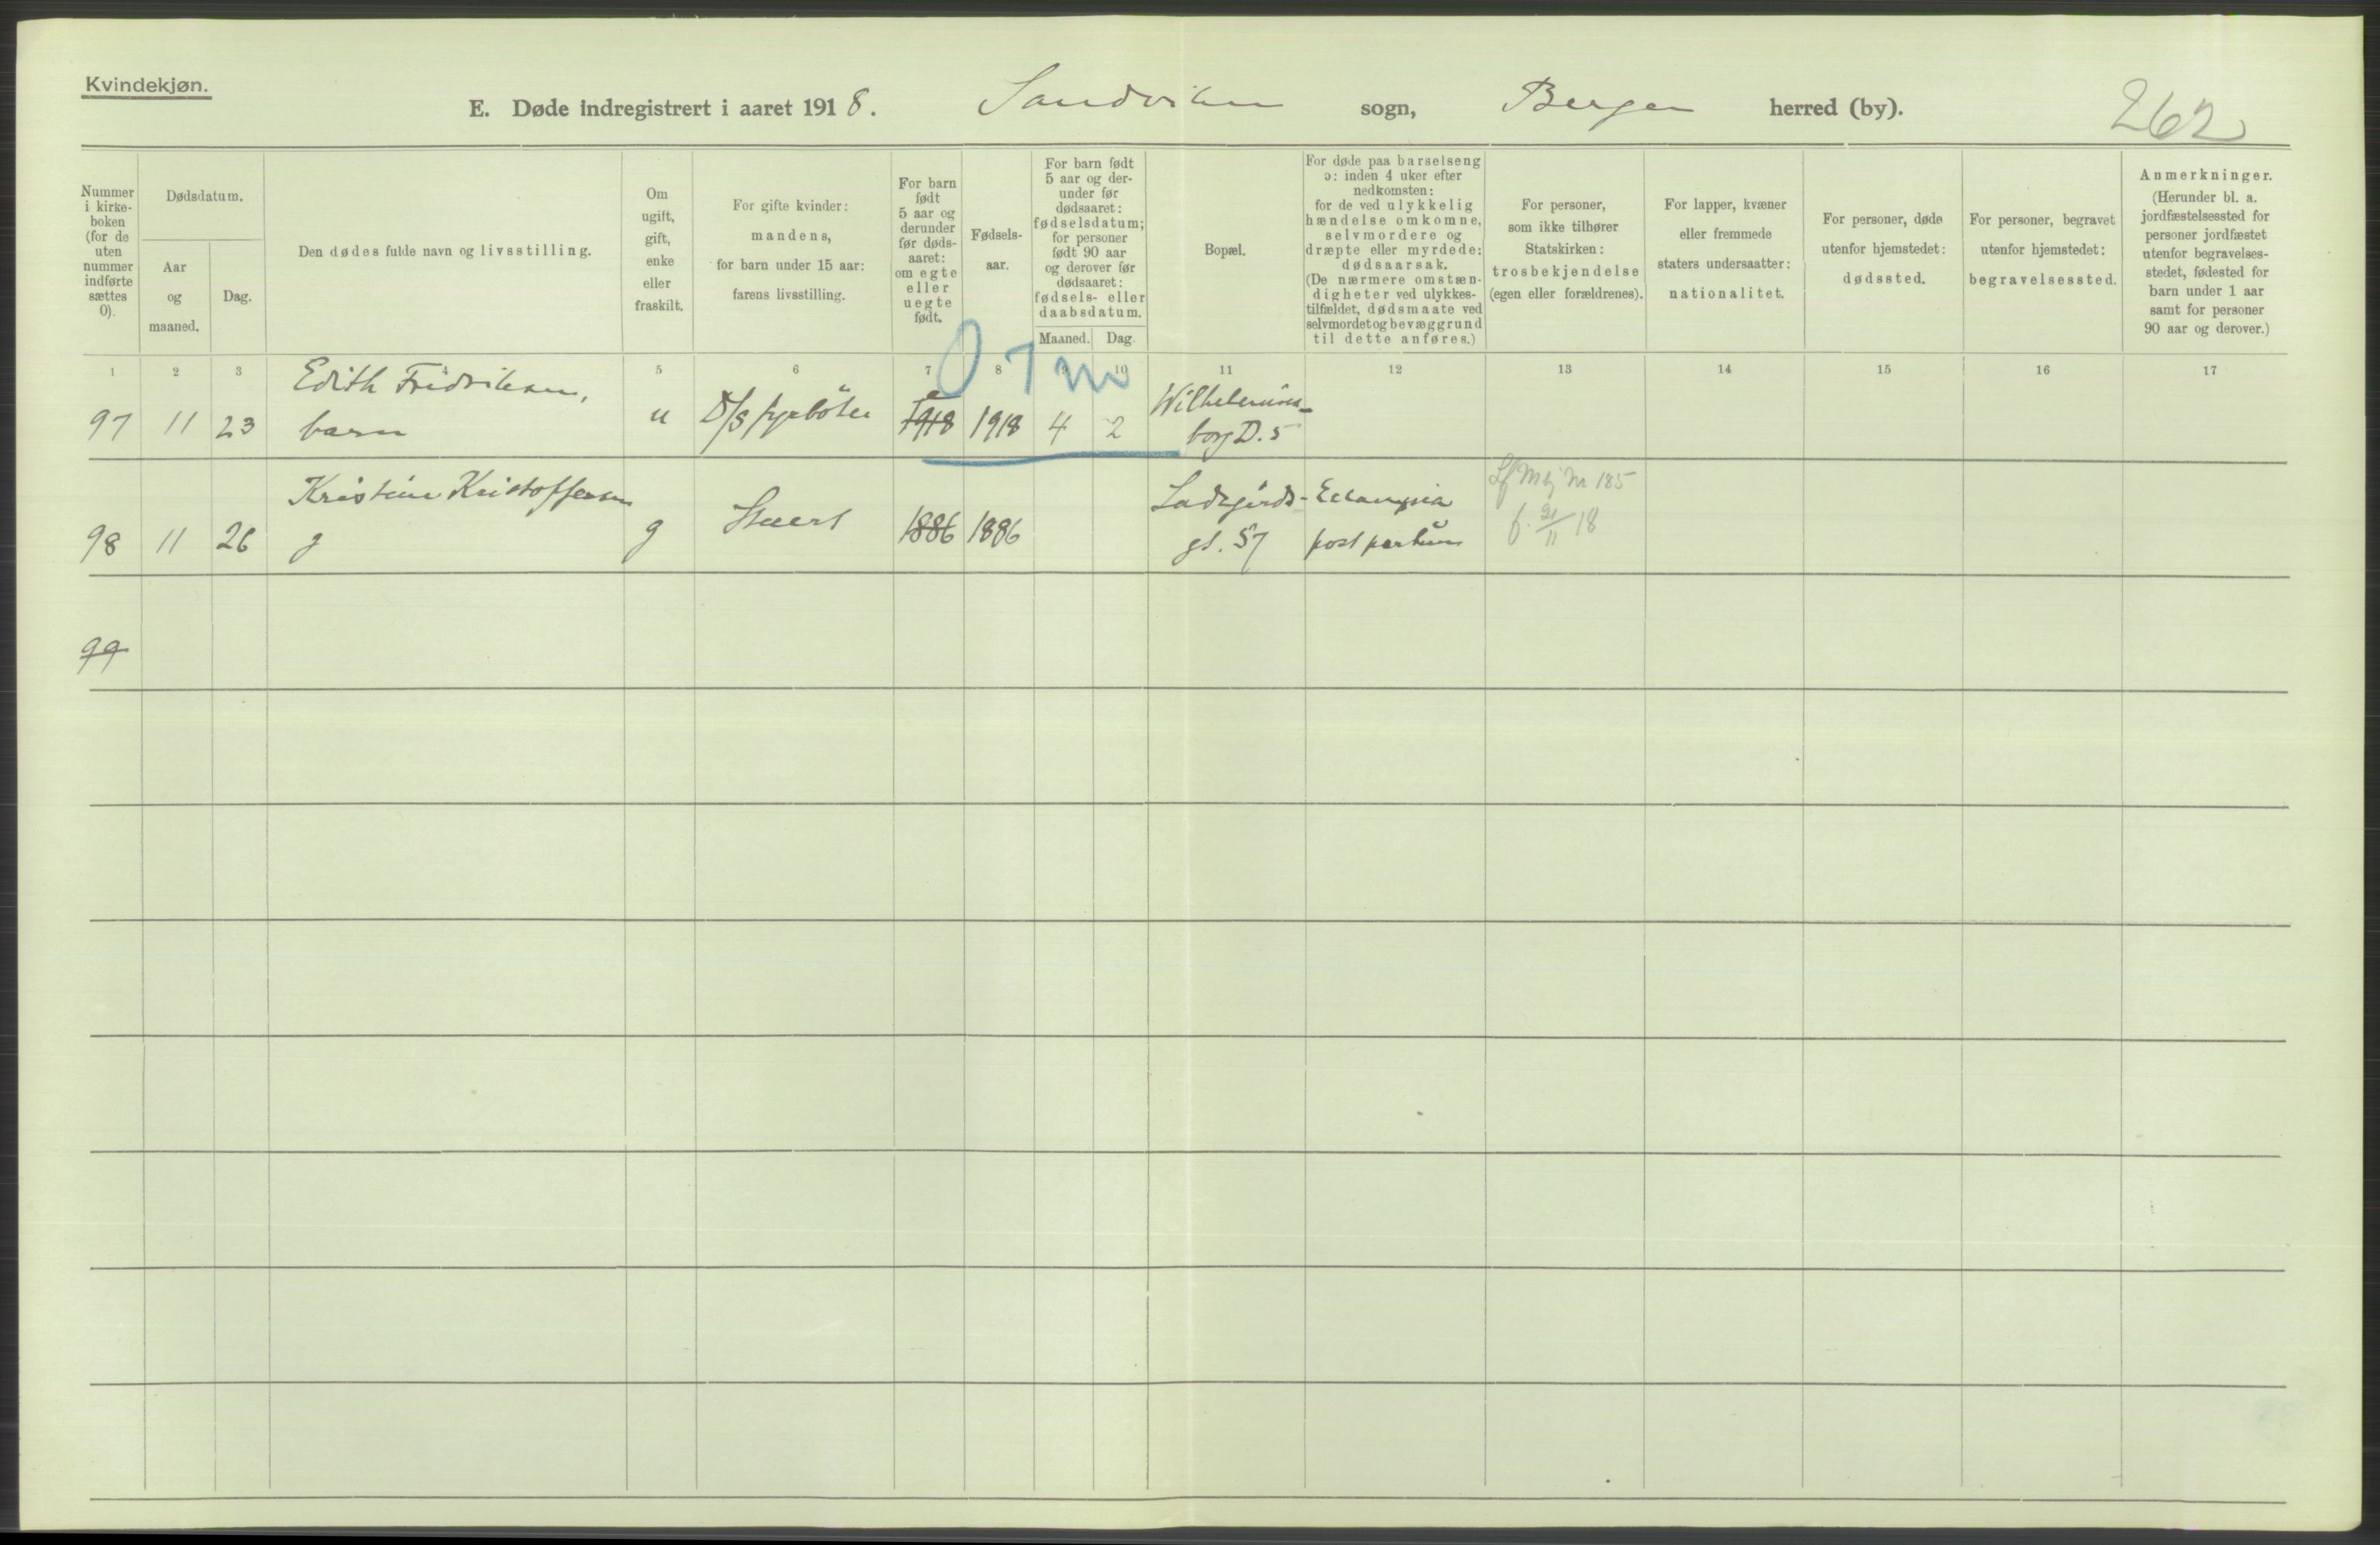 Kvindekjøn.
E. Døde indregistrert i aaret 1918. Sandviken sogn, Bergen herred (by). 262
Nummer i kirke-boken (for de uten nummer indførte sættes 0).
Dødsdatum.
Aar og maaned.
Dag.
Den dødes fulde navn og livsstilling.
Om ugift, gift, enke eller fraskilt.
For gifte kvinder: mandens, for barn under 15 aar: farens livsstilling.
For barn født 5 aar og derunder før døds-aaret: om egte eller uegte født.
Fødsels-aar.
For barn født 5 aar og der-under før dødsaaret: fødselsdatum; for personer født 90 aar og derover før dødsaaret: fødsels- eller daabsdatum.
Maaned. Dag.
Bopæl.
For døde paa barselseng ɔ: inden 4 uker efter nedkomsten: for de ved ulykkelig hændelse omkomne, selvmordere og dræpte eller myrdede: dødsaarsak. (De nærmere omstæn-digheter ved ulykkes-tilfældet, dødsmaate ved selvmordet og bevæggrund til dette anføres.)
For personer, som ikke tilhører Statskirken: trosbekjendelse (egen eller forældrenes).
For lapper, kvæner eller fremmede staters undersaatter: nationalitet.
For personer, døde utenfor hjemstedet: dødssted.
For personer, begravet utenfor hjemstedet: begravelsessted.
Anmerkninger. (Herunder bl. a. jordfæstelsessted for personer jordfæstet utenfor begravelses-stedet, fødested for barn under 1 aar samt for personer 90 aar og derover.)
1 2 3 4 5 6 7 8 9 10 11 12 13 14 15 16 17
0 7 m
Edith Fredriksen, e Wilhelmines-
97 11 23 barn u D/S fyrböter 1918 1918 4 2 borg D. 5
Kristine Kristoffersen Ladegårds- Eclampsia Lf M bj Nr 185
98 11 26 g g Stuert 1886 1886 gt. 57 post partum f. 21/11 18
99